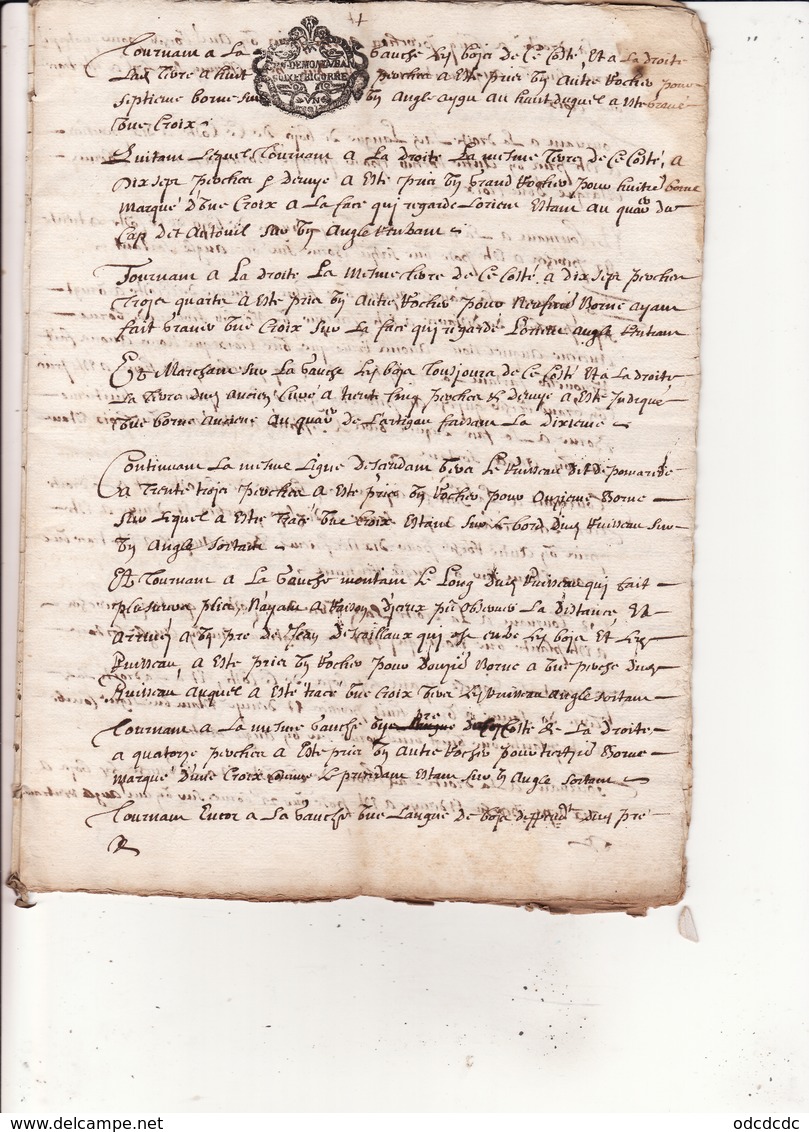 Tournant a La Gauche Les bois de Ce Costé, Et a La droite
Lad. terre a huit perches a Esté pris un Autre Rocher pour
septieme borne sur un Angle aygu au haut duquel a esté gravé
une Croix
DEMONTAUBAN
FOIX ET BIGORRE
UN S
Suivant Lequel Tournant A La droitte La mesme terre de Ce Costé, a
Dix sept perches & demye a Esté pris un Grand Rocher pour huitie borne
Marqué d'une Croix a La face qui regarde Lorient Estant Au quar du
Cap det Autouil sur un Angle
Tournant a La droite La mesme terre de Ce Costé, a Dix sept perches
trois quarts a Esté pris un Autre Rocher pour Neufvie Borne ayant
fait graver une Croix sur La face qui regarde Lorient Angle
Et Marchant sur La Gauche Les bois Toujours de Ce Costé Et a La droite
La terre d'un Ancien a trente Cinq perches & demye a Esté Judiqué
une borne Ancienne Au quar de L'artigau faisant La dixieme
Continuant La mesme Ligne descendant vers Le Ruisseau dit de
a Trente trois perches a Esté pris un Rocher pour Onzieme Borne
sur Lequel a Esté tracé une Croix Estant sur Le bord dud. Ruisseau sur
un Angle sortant
Et Tournant a La Gauche montant Le Long dud. Ruisseau qui fait
plusieurs plis, Nayant a Raison d'Jceux peu Observer La distance Et
arrivés a un pré de Jean qui est entre Les bois Et Led.
Ruisseau, a Esté pris un Rocher pour Douzie Borne a une perche dud.
Ruisseau Auquel a Esté tracé une Croix vers Le Ruisseau Angle sortant
Tournant a La mesme Gauche pre Costé & La Droite
a quatorze perches a Esté pris un Autre Rocher pour tretzie Borne
marqué d'une Croix Comme Le precedant Estant sur un Angle sortant
Tournant Encor a La Gauche une Langue de bois dud. pré
odcdcdc